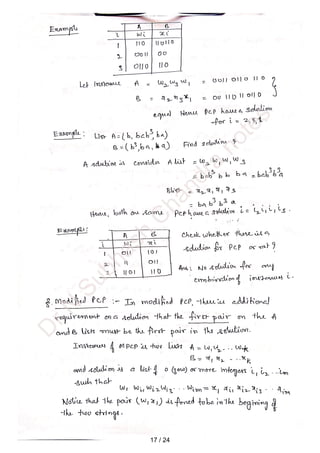 Example:
A B
i wi xi
1 110 110110
2 0011 00
3 0110 110
Let Instance A = w2 w3 w1 = 0011 0110 110
B = x2 x3 x1 = 00 110 110110
equal Hence PCP have a solution
for i = 2,3,1
Example: List A = (b, bcb³, ba)
B = (b³, ba, a) Find solution ?
A solution is consider A list = w2 w1 w1 w3
Blist = x2 x1 x1 x3
Hence, both are same. PCP have a solution
Example:
A B
i wi xi
1 011 101
2 11 011
3 1101 110
Check whether there is a
solution for PCP or not ?
Ans: No solution for any
combination of instances i.
Modified PCP :- In modified PCP, there is additional
requirement on a solution that the first pair on the A
and B lists must be the first pair in the solution.
Instances of MPCP is two lists A = w1, w2 ... wk
B = x1, x2 ... xk
and solution is a list of 0 (zero) or more integers i1, i2 ... im
such that
w1 wi1 wi2 wi3 ... wim = x1 xi1 xi2 xi3 ... xim
Notice that the pair (w1, x1) is forced to be in the beginning of
the two strings.
17 / 24